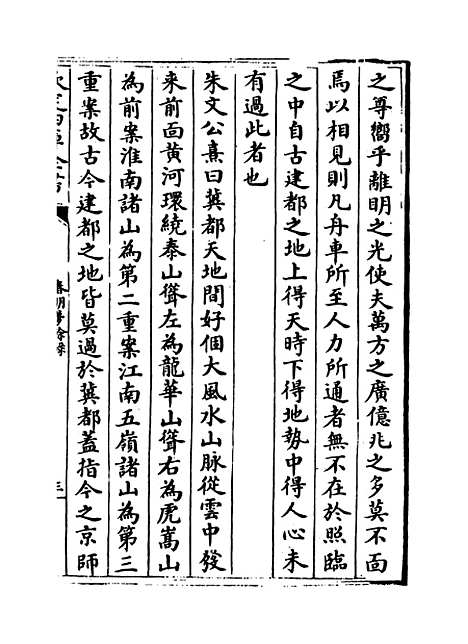 之尊嚮乎離明之光使夫萬方之廣億兆之多莫不面
焉以相見則凡舟車所至人力所通者無不在於照臨
之中自古建都之地上得天時下得地勢中得人心未
有過此者也
朱文公熹曰冀都天地間好個大風水山脈從雲中發
来前面黄河環繞泰山聳左為龍華山聳右為虎嵩山
為前案淮南諸山為第二重案江南五嶺諸山為第三
重案故古今建都之地皆莫過於冀都蓋指今之京師
欽定四庫全書
春明夢餘錄
三